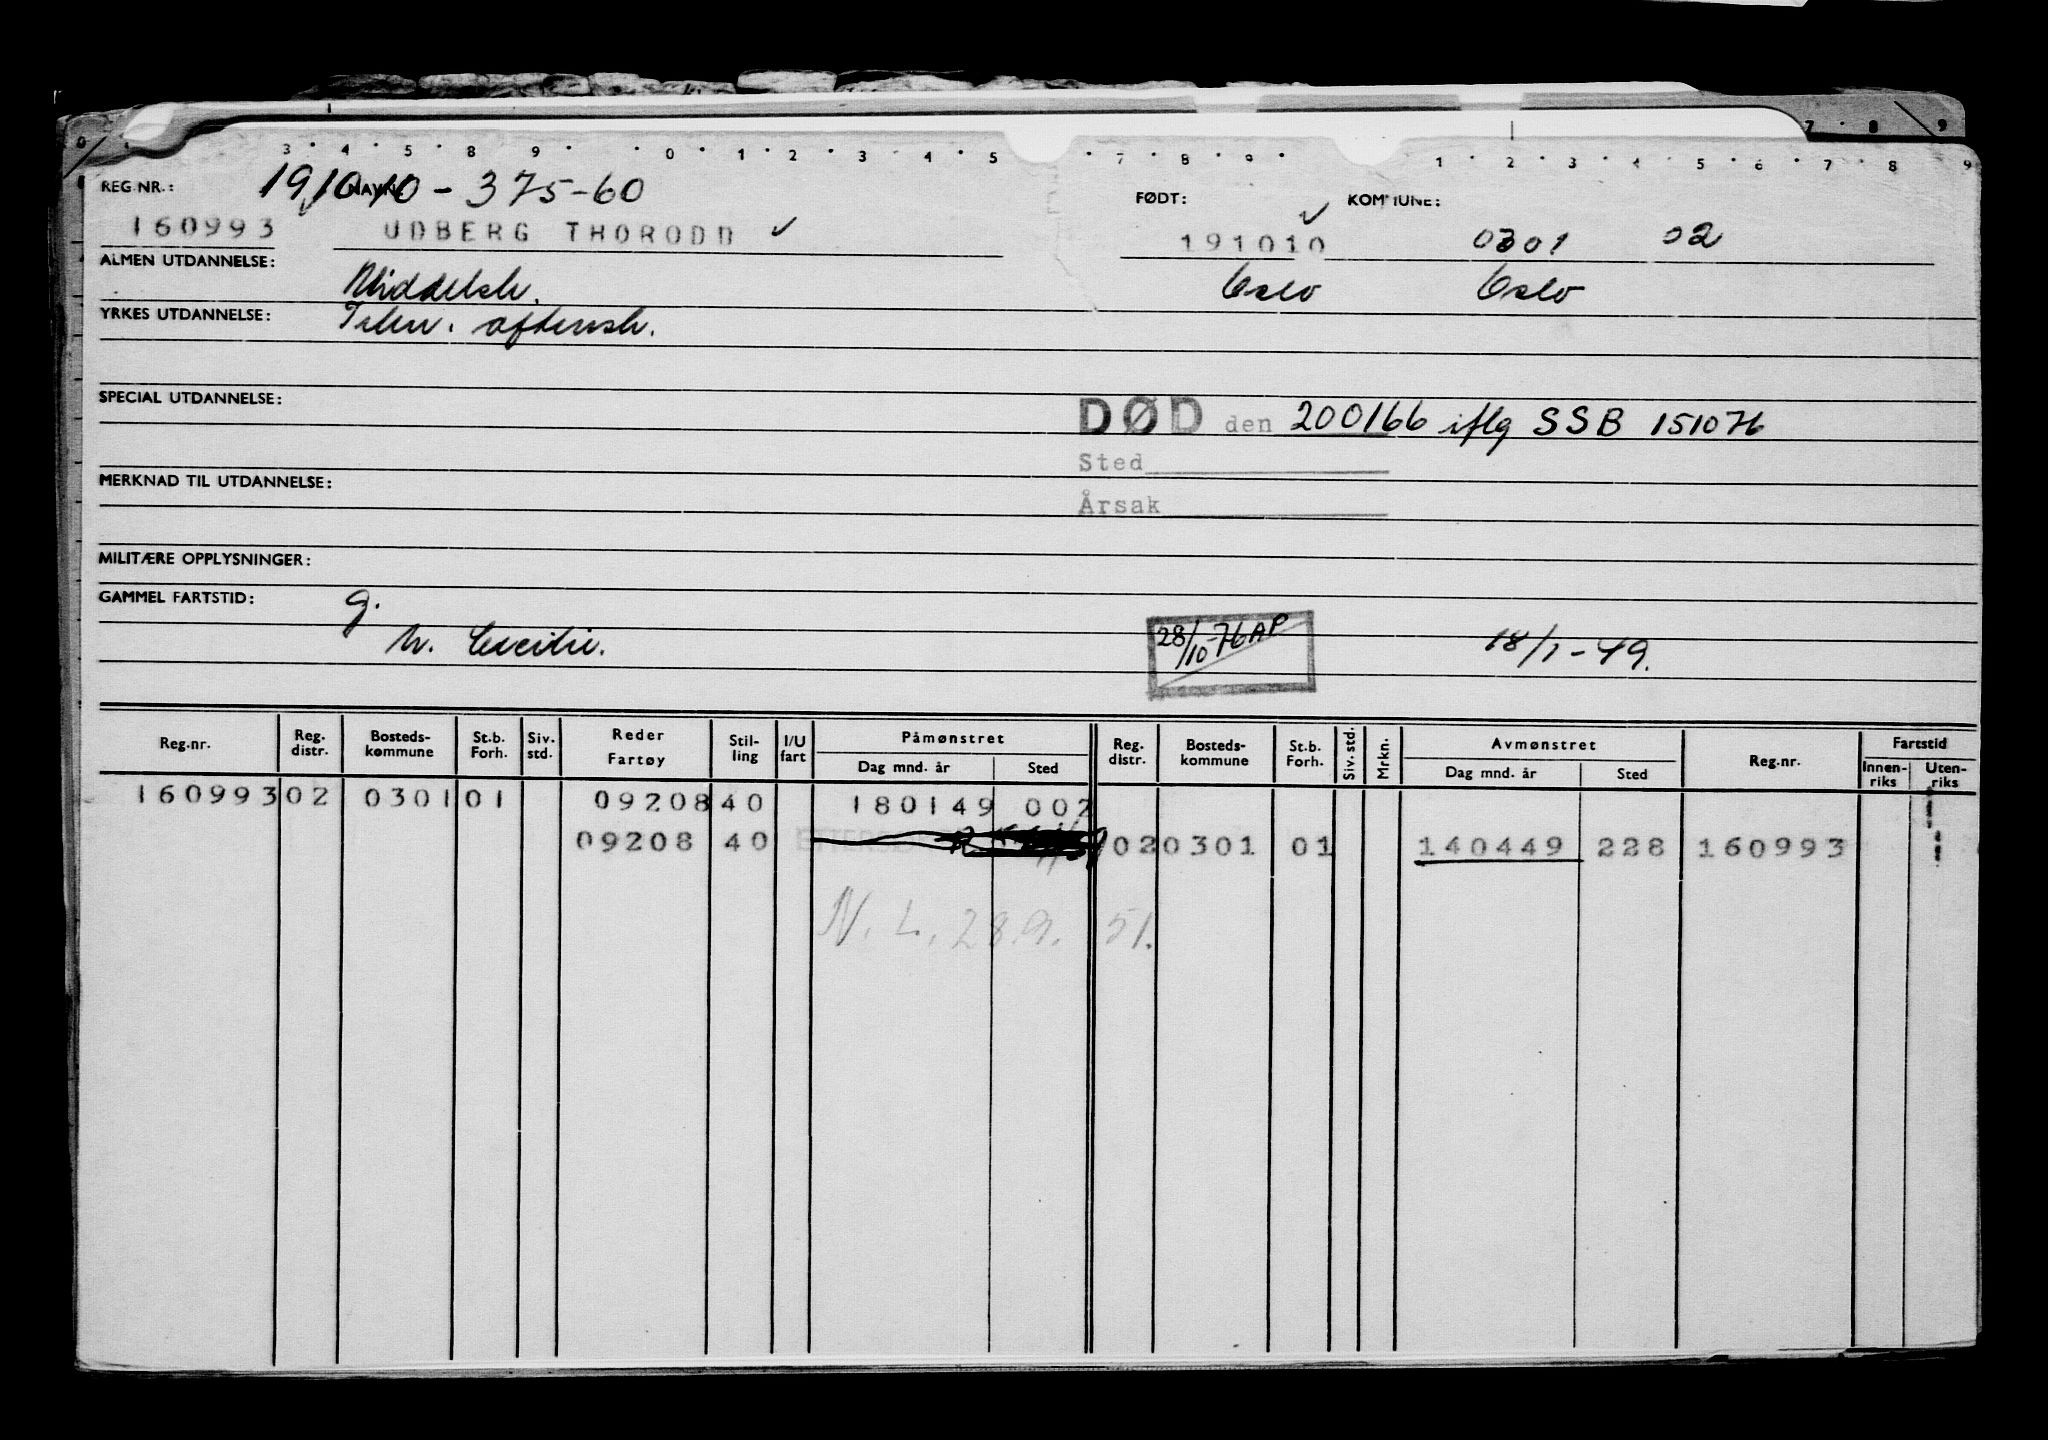 0 7 8 9
3 4 5 8 9 0 1 2 3 4 5 7 8 9 1 2 3 4 5 6 7 8 9
REG.NR.: NAVN: 191010-375-60 FØDT: KOMMUNE:
160993 UDBERG THORODD ✓ 191010 ✓ 0301 02
ALMEN UTDANNELSE: Middelsk. Oslo Oslo
YRKES UTDANNELSE: aftensk.
SPECIAL UTDANNELSE:
DØD den 200166 iflg SSB 151076
Sted
MERKNAD TIL UTDANNELSE:
Årsak
MILITÆRE OPPLYSNINGER:
GAMMEL FARTSTID: g.
M. Cecilie. 28/10-76 AP 18/1-49.
Reg.nr. Reg. distr. Bosteds-kommune St.b. Forh. Siv. std. Reder Fartøy Stil-ling I/U fart Påmønstret Dag mnd. år Sted Reg. distr. Bosteds-kommune St.b. Forh. Siv. std. Mrkn. Avmønstret Dag mnd. år Sted Reg.nr. Fartstid Innen-riks Uten-riks
160993 02 0301 01 09208 40 180149 002
09208 40 02 0301 01 140449 228 160993
N. L. 28.9. 51.